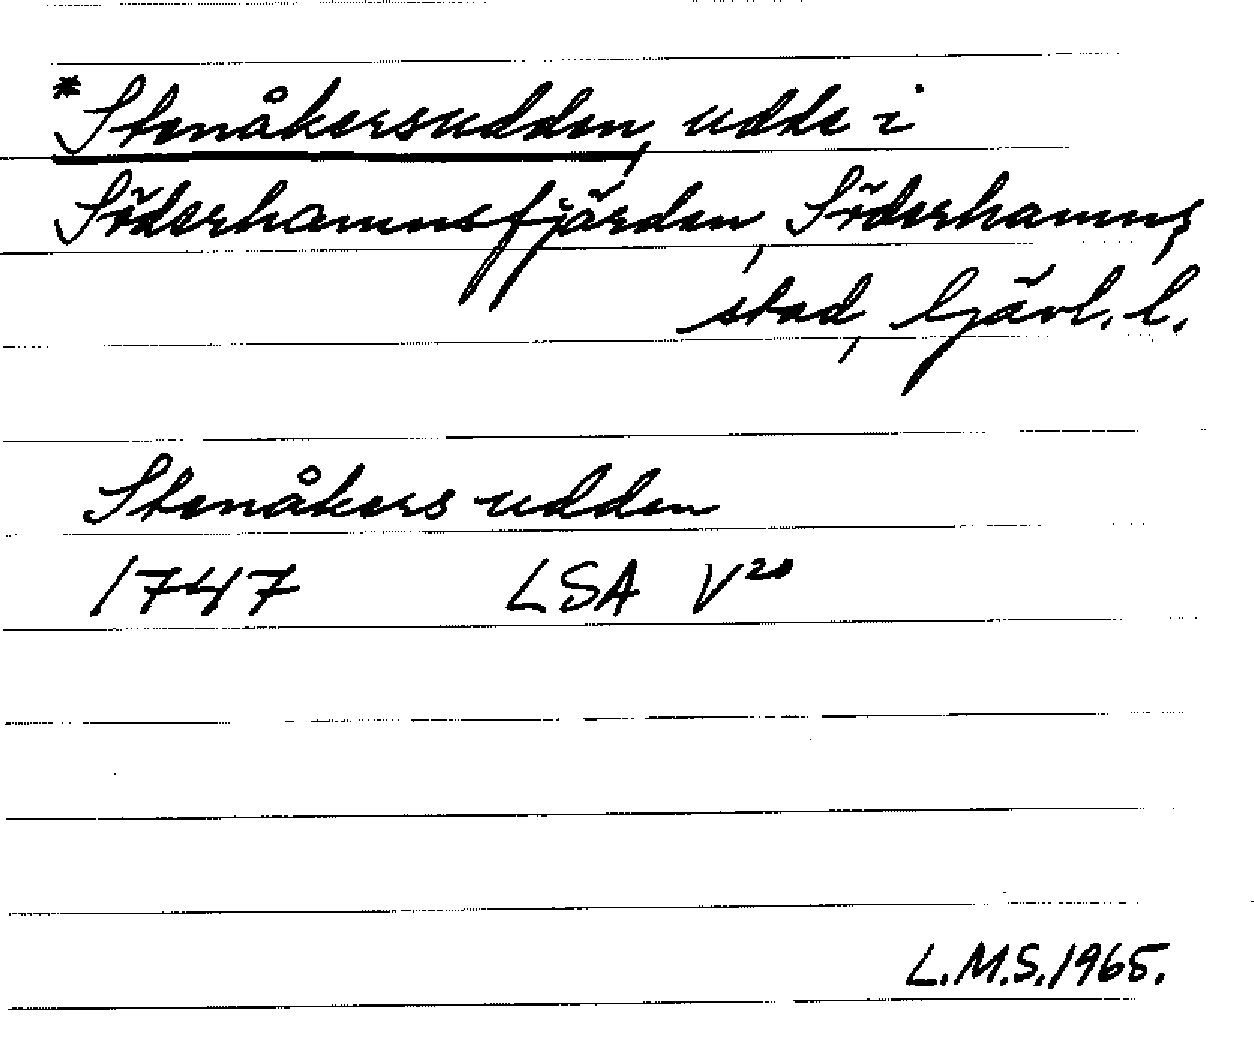 *Stenåkersudden, udde i
Söderhamnsfjärden, Söderhamns
stad, Gävl. l.
Stenåkers udden
1747 LSA V²⁰
L.M.S. 1965.